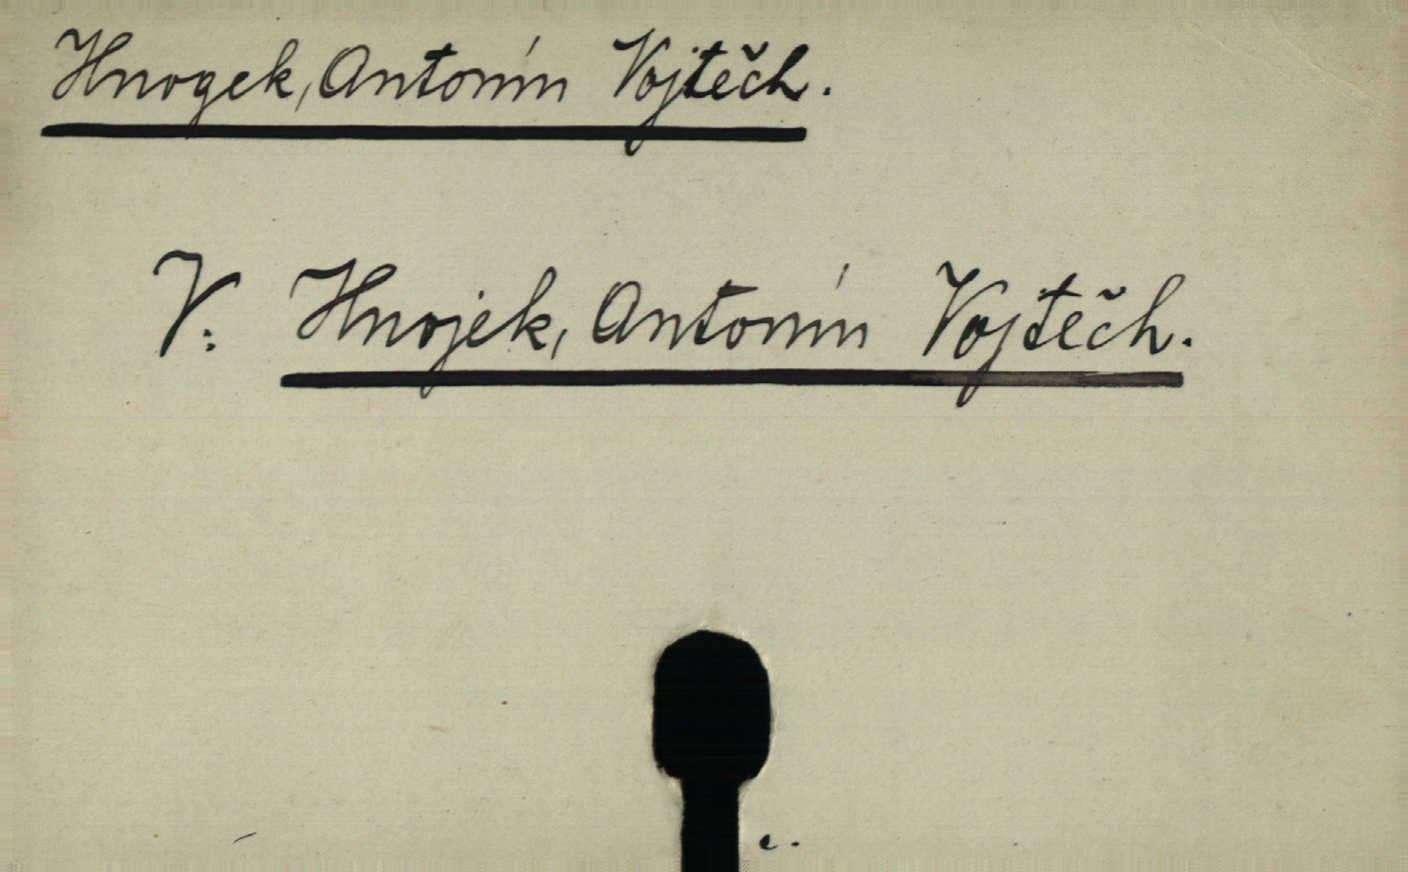 Hnogek, Antonín Vojtěch.
V: Hnojek, Antonín Vojtěch.
c.